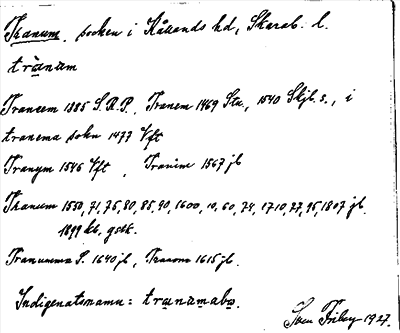 Tranum. socken i Kållands hd, Skarab. l.
tranum
Tranem 1885 S.R.P., Tranem 1469 Stu., 1540 Skjb. s., i
tranema sokn 1477 Vft
Tranym 1546 Vft, Tranim 1567 jb
Tranum 1550, 71, 76, 80, 85, 90, 1600, 10, 60, 74, 1710, 27, 95, 1807 jb.
1899 kb, gsek.
Tranumma S. 1640 jb, 1615 jb.
Indigenatsnamn: tranumabo.
Sven Friby 1927.